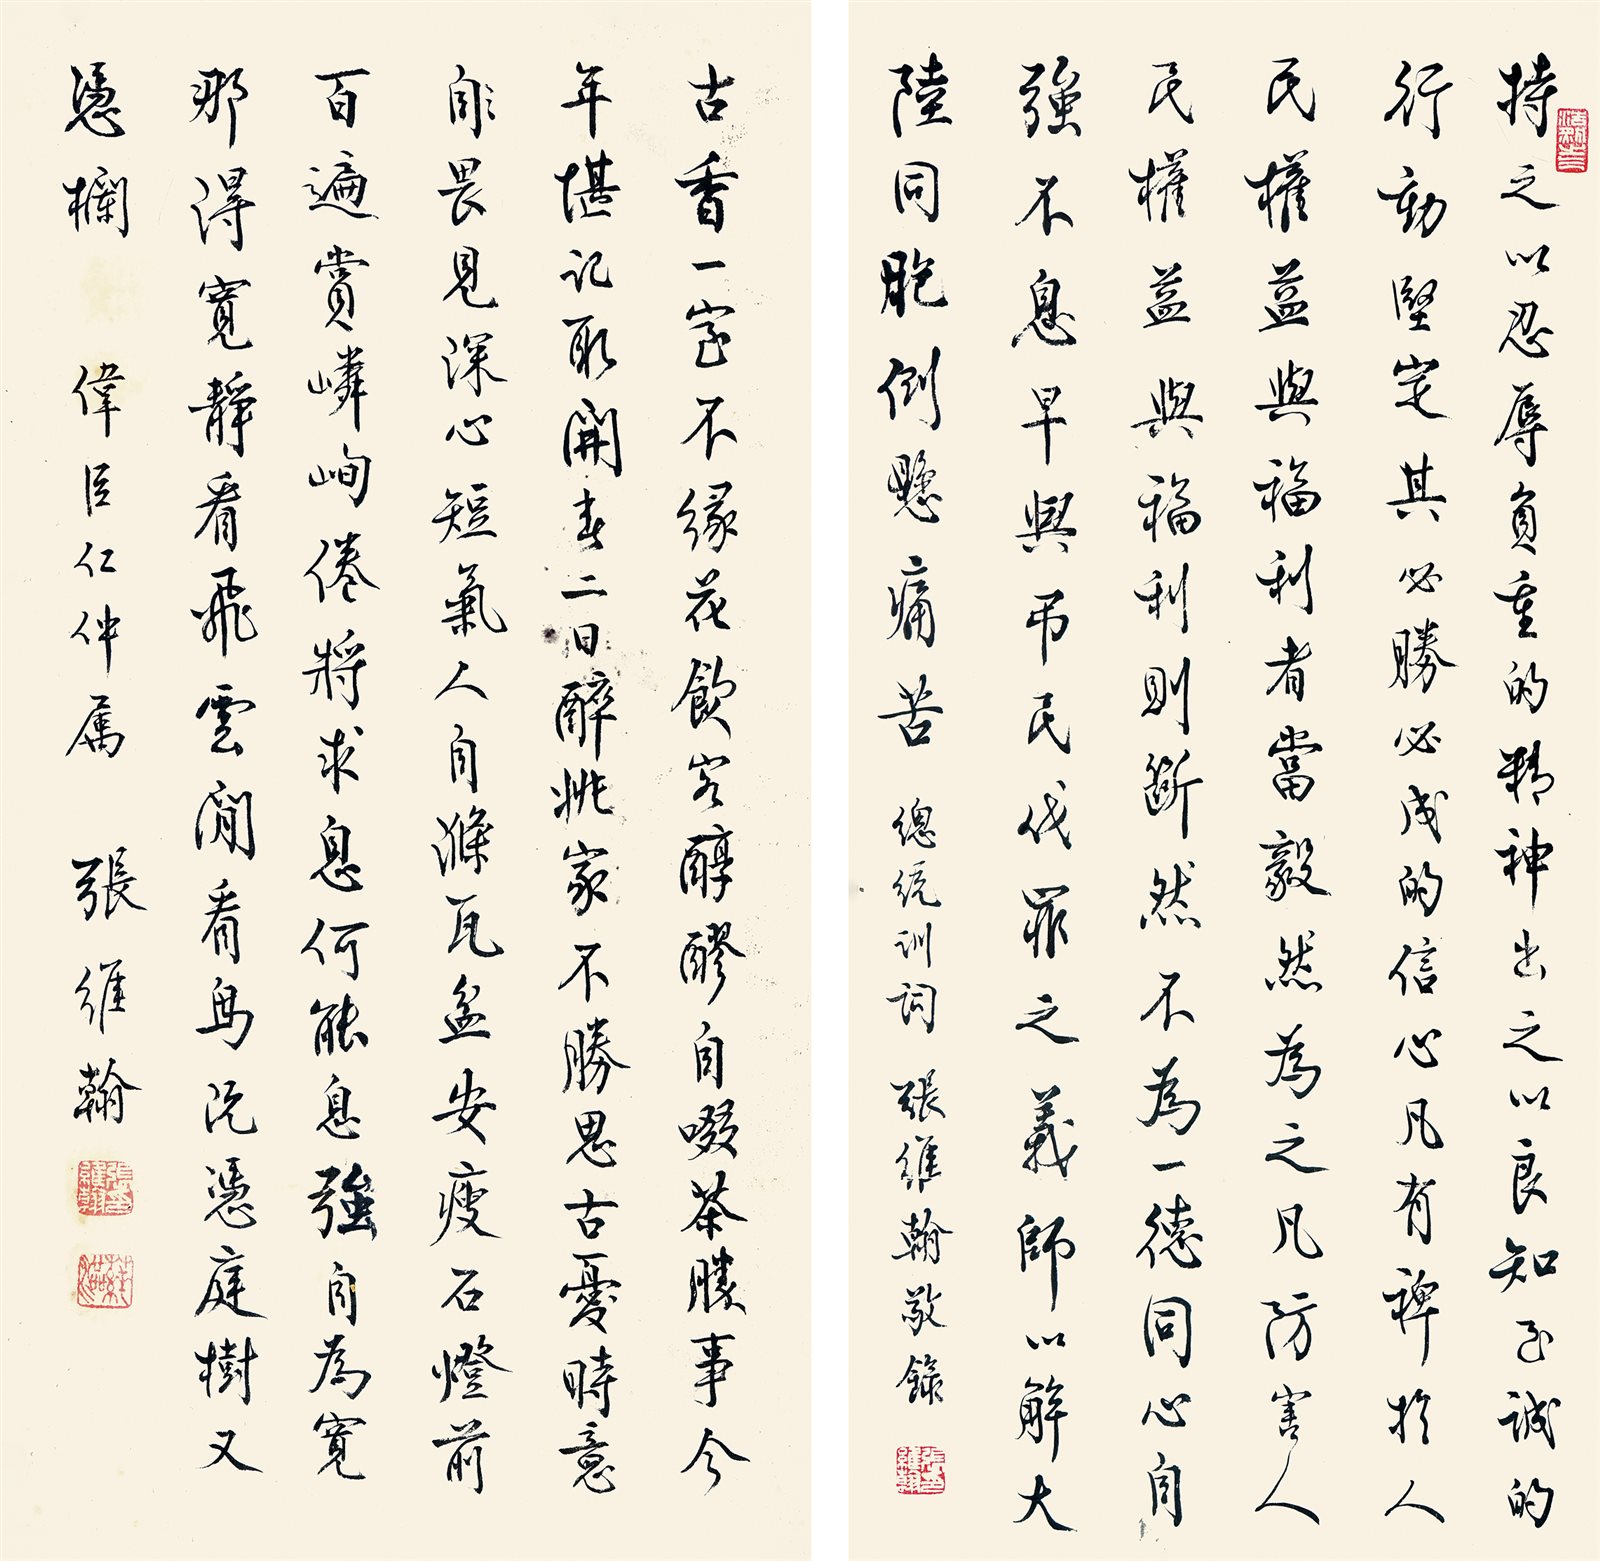 持之以忍辱負重的精神出之以良知至誠的
行動堅定其必勝必成的信心凡有裨於人
民權益與福利者當毅然為之凡防害人
民權益與福利則斷然不為一德同心自
強不息早興弔民伐罪之義師以解大
陸同胞倒懸痛苦 總統訓詞 張維翰敬錄
古香一室不緣花飲客醇醪自啜茶勝事今
年堪記取開春二日醉姚家不勝思古憂時意
自畏見深心短氣人自滌瓦盆安瘦石燈前
百遍賞嶙峋倦將求息何能息強自為寬
那得寬靜看飛雲閒看鳥沉憑庭樹又
憑欄 偉臣仁仲屬 張維翰